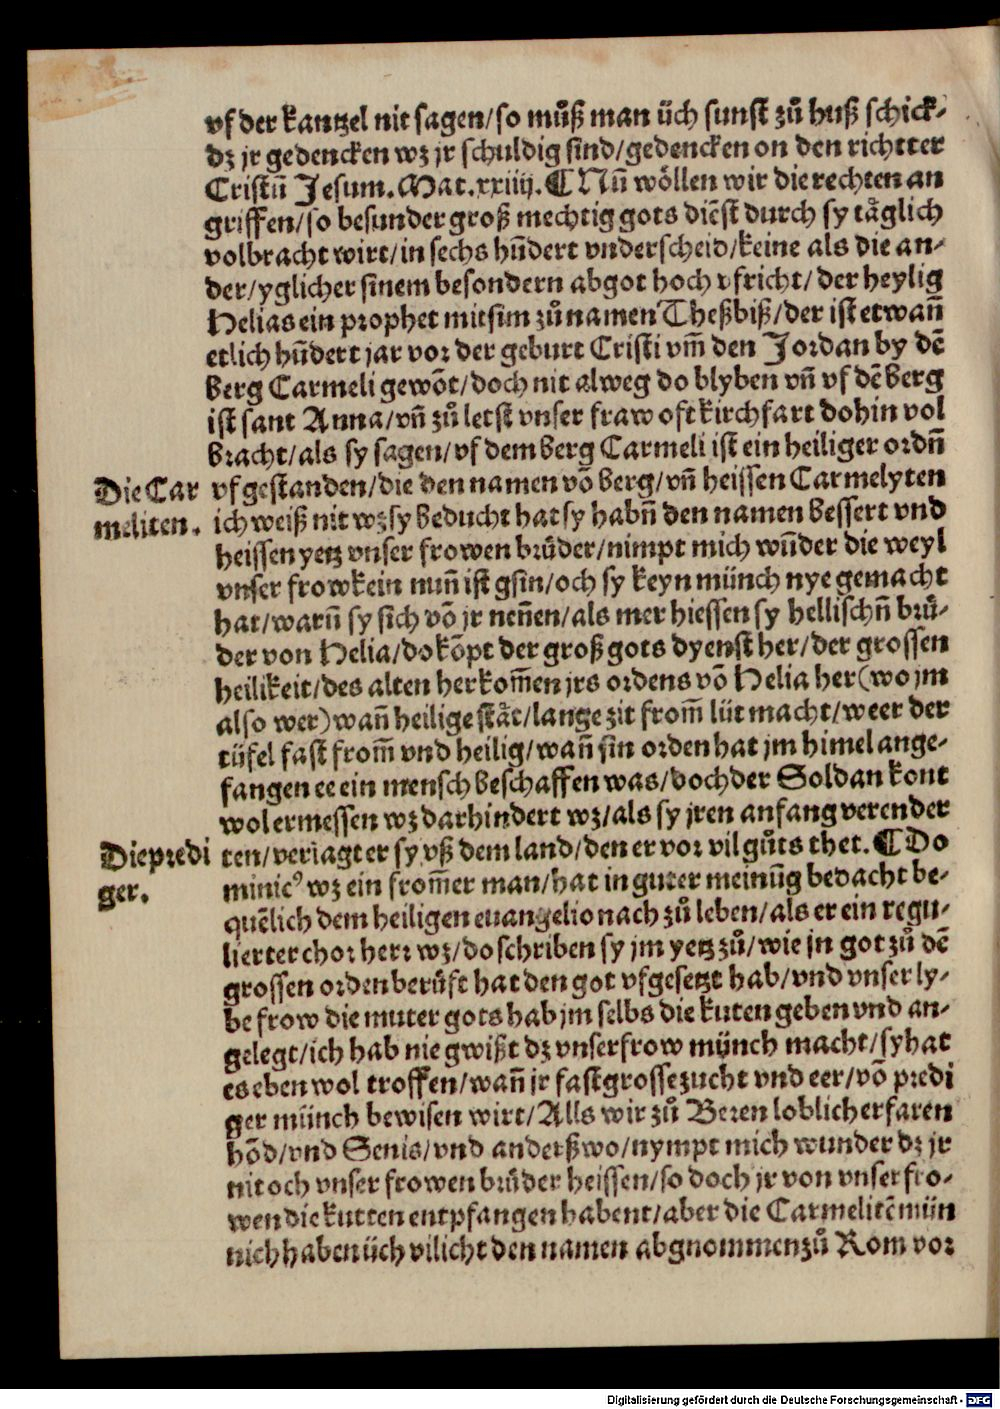 vf der kantzel nit sagen/so muͦß man üch sunst zuͦ huß schick⸗
dz jr gedencken wz jr schuldig sind/gedencken on den richtter
Cristū Jesum. Mat. xxiiij. ¶ Nū wöllen wir die rechten an
griffen/so besunder groß mechtig gots diēst durch sy täglich
volbracht wirt/in sechs hūdert vnderscheid/keine als die an⸗
der/yglicher sinem besondern abgot hoch vfricht/der heylig
Helias ein prophet mit sim zuͦ namen Theßbiß/der ist etwañ
etlich hūdert jar vor der geburt Cristi vm̄ den Jordan by dē
berg Carmeli gewōt/doch nit alweg do blyben vñ vf dē berg
ist sant Anna/vñ zuͦ letst vnser fraw oft kirchfart dohin vol
bracht/als sy sagen/vf dem berg Carmeli ist ein heiliger ordñ
Die Car
meliten.
vfgestanden/die den namen vō berg/vñ heissen Carmelyten
ich weiß nit wz sy beducht hat sy habñ den namen bessert vnd
heissen yetz vnser frowen bruͤder/nimpt mich wūder die weyl
vnser frow kein nuñ ist gsin/och sy keyn münch nye gemacht
hat/warū sy sich vō jr neñen/als mer hiessen sy hellischñ bruͤ⸗
der von Helia/do kōpt der groß gots dyenst her/der grossen
heilikeit/des alten herkom̄en jrs ordens vō Helia her (wo jm
also wer) wañ heilige stät/lange zit from̄ lüt macht/weer der
tüfel fast from̄ vnd heilig/wañ sin orden hat jm himel ange⸗
fangen ee ein mensch beschaffen was/doch der Soldan kont
wol ermessen wz darhindert wz/als sy jren anfang verender
Die predi
ger.
ten/veriagt er sy vß dem land/den er vor vil guͦts thet. ¶ Do
minicꝰ wz ein from̄er man/hat in guter meinūg bedacht be⸗
quēlich dem heiligen euangelio nach zuͦ leben/als er ein regu⸗
lierter chor herr wz/do schriben sy jm yetz zuͦ/wie jn got zuͦ dē
grossen orden beruͤft hat den got vfgesetzt hab/vnd vnser ly⸗
be frow die muter gots hab jm selbs die kuten geben vnd an⸗
gelegt/ich hab nie gwißt dz vnser frow münch macht/sy hat
es eben wol troffen/wañ jr fast grosse zucht vnd eer/vō predi
ger münch bewisen wirt/Alls wir zuͦ Beren loblich erfaren
hōd/vnd Senis/vnd anderßwo/nympt mich wunder dz jr
nit och vnser frowen bruͤder heissen/so doch jr von vnser fro⸗
wen die kutten entpfangen habent/aber die Carmelitē mün
nich haben üch vilicht den namen abgnommen zuͦ Rom vor
Digitalisierung gefördert durch die Deutsche Forschungsgemeinschaft - DFG